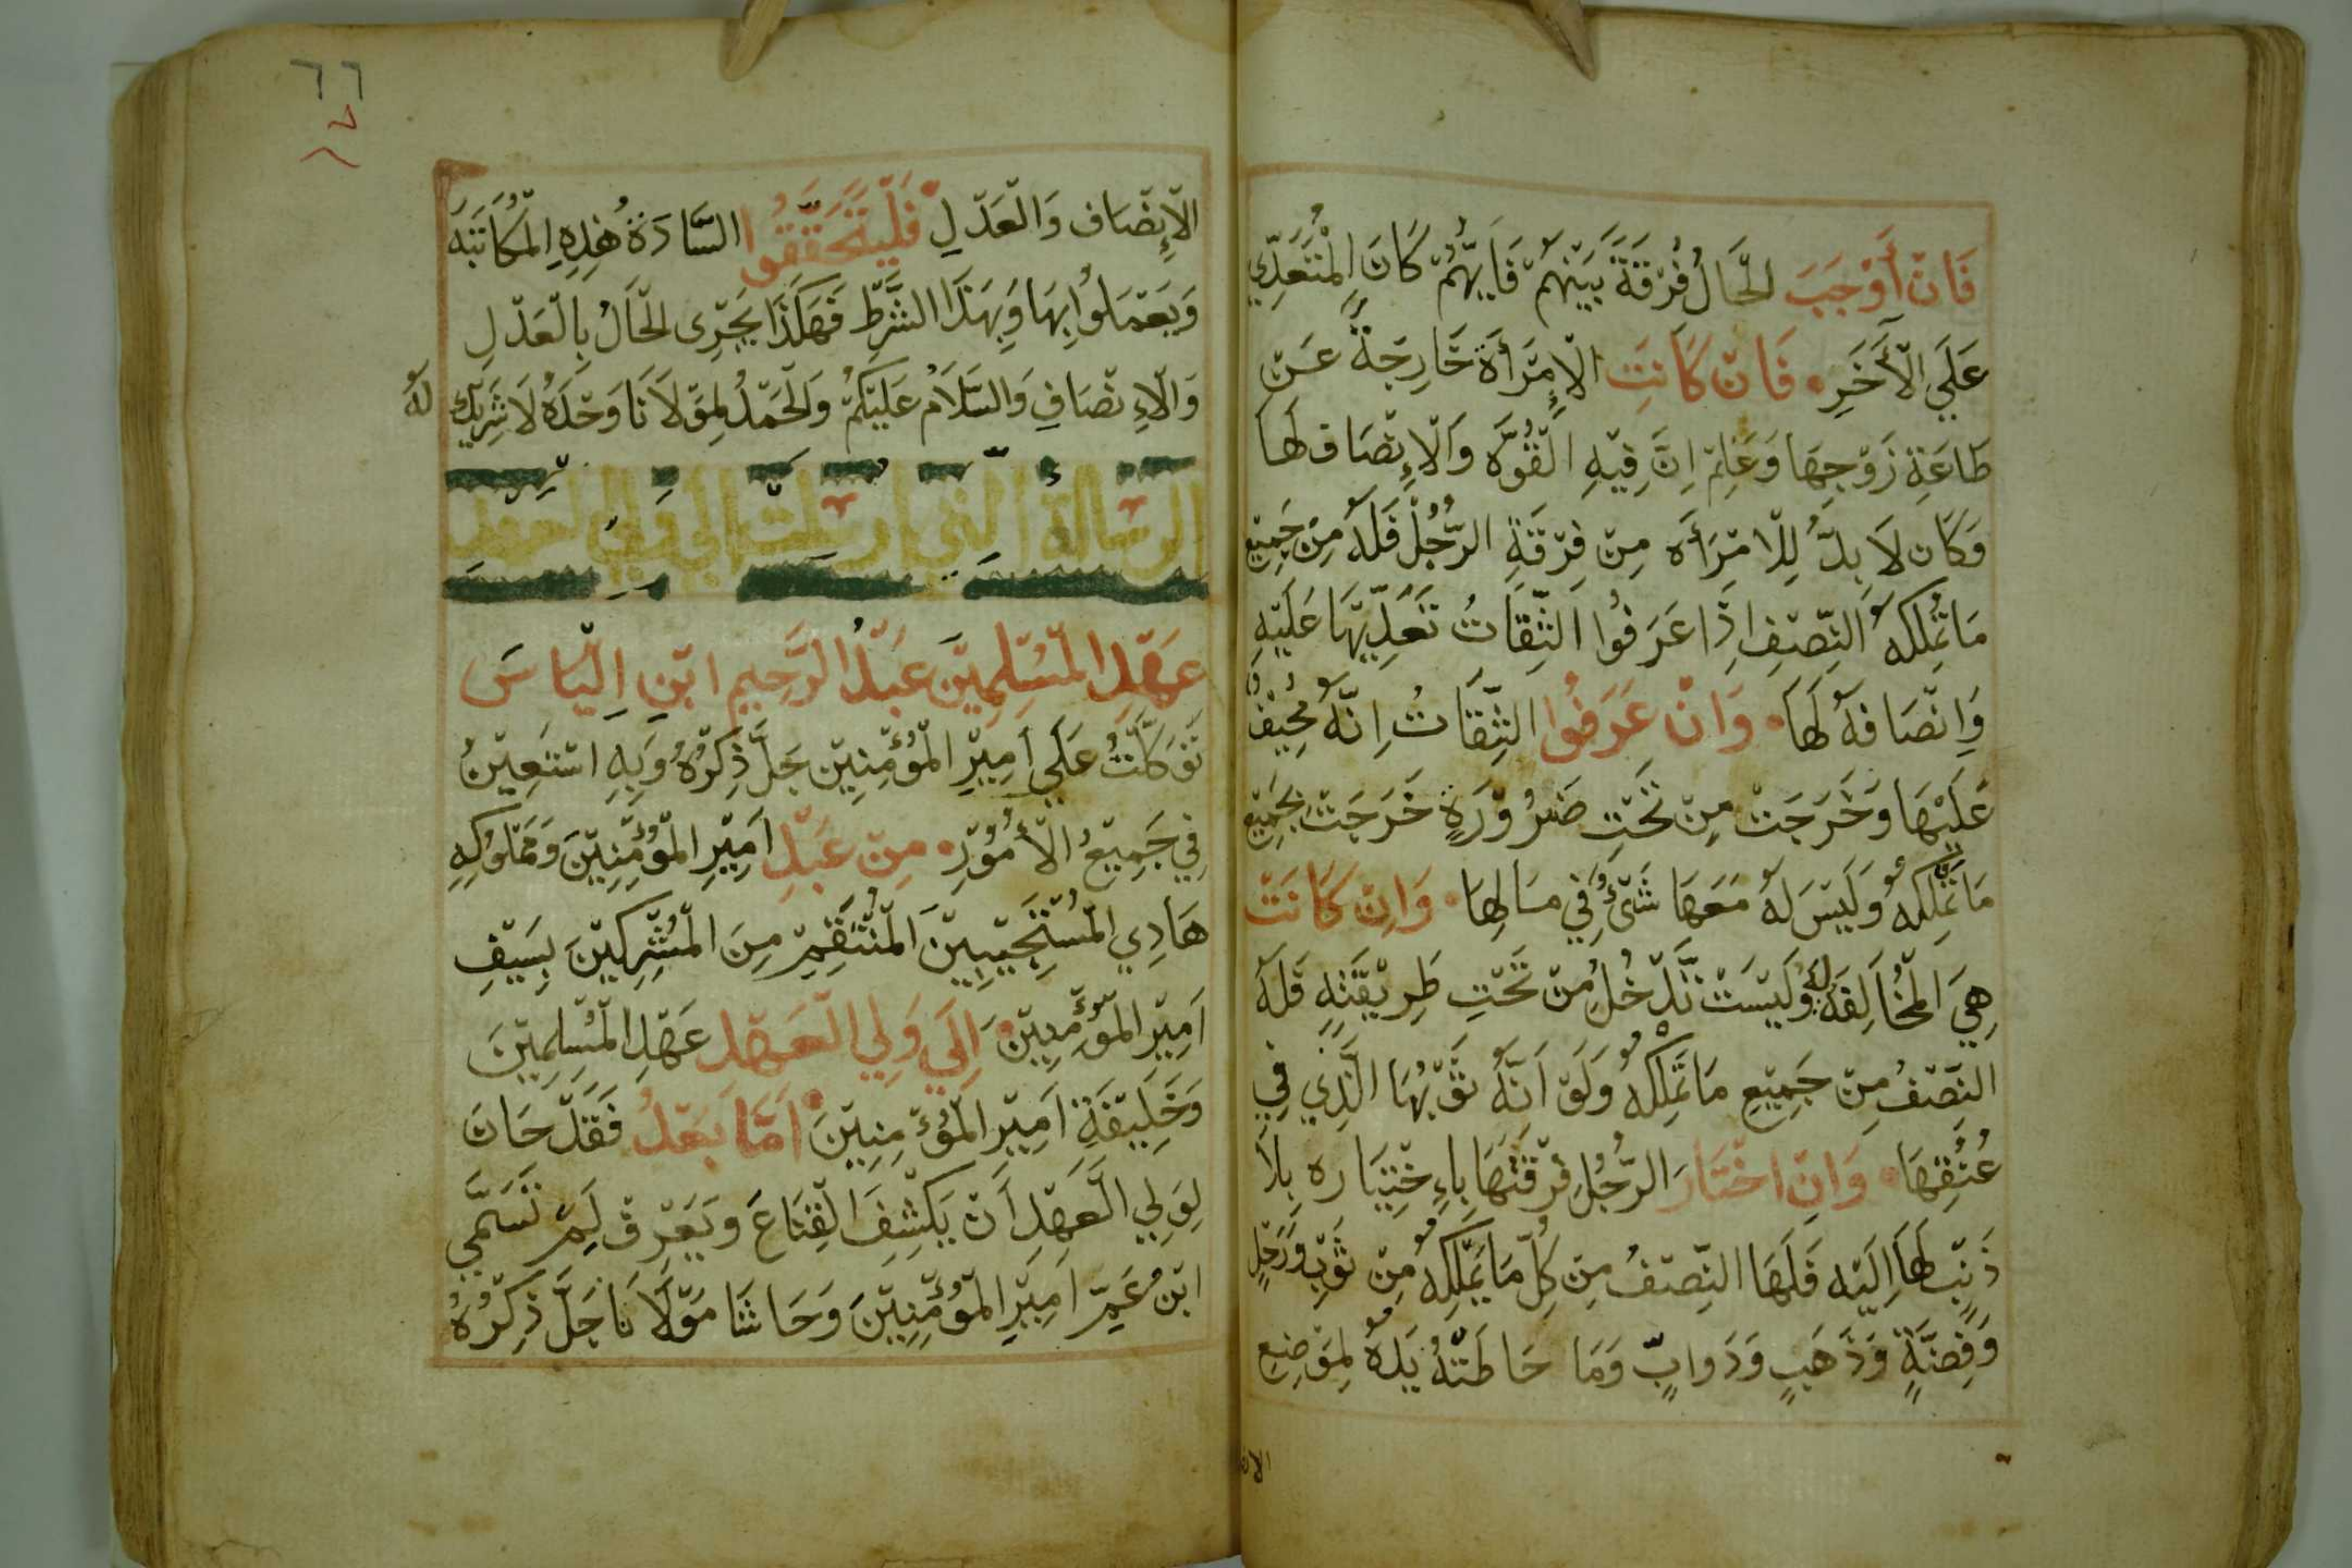 فَانْ أَوْجَبَ الْحَالُ فُرْقَةَ بَيْنَهُمْ فَايُّهُمْ كَانَ الْمُتَعَدِّي
عَلَي الْأَخَرِ • فَانْ كَانَتِ الْاِمْرَأَة خَارِجَةً عَنْ
طَاعَةِ زَوْجِهَا وَعَلِمْ اِنَّ فِيْهِ الْقُوَّه وَالْاِنْصَاف لَهَا
وَكَانَ لَا بِدَّ لِلْامْرَأَه مِنْ فِرْقَةِ الرَّجُلْ فَلَهُ مِنْ جَمِيْعِ
مَا تَمْلِكهُ النِّصْفِ اِذَا عَرَفُوا الثِّقَاتُ تَعَدِّيْهَا عَلَيْهِ
وَاِنْصَافهُ لَهَا • وَانْ عَرَفُوا الثِّقَاتُ اِنَّهُ مُحِيْفُ
عَلَيْهَا وَخَرَجَتْ مِنْ تَحْتِ ضَرُوْرَةٍ خَرَجَتْ بِجَمِيْعِ
مَا تَمْلِكهُ وَلَيْسَ لَهُ مَعَهَا شَيْءُ فِي مَالِهَا • وَاِنْ كَانَتْ
هِيَ الْمُخَالِفَه لَهُ وَلَيْسَتْ تَدْخُلُ مِنْ تَحْتِ طَرِيْقَتِهِ فَلَهُ
النِّصْفُ مِنْ جَمِيْعِ مَا تَمْلِكهُ وَلَوْ اَنَّهُ ثَوْبُهَا الَّذِي فِي
عُنُقِهَا • وَاِنْ اخْتَارَ الرَّجُلُ فُرْقَتهَا بِاءِخْتِيَاره بِلَا
ذَنْبٍ لَهَا اِلَيْه فَلَهَا النِّصْفُ مِنْ كِلِّ مَا يَمْلِكه مِنْ ثَوْبٍ وَرَحْلٍ
وَفِضَّةٍ وَذَهَبٍ وَدَوابٍّ وَمَا حَاطَتْهُ يَدَهُ لِمَوْضِعِ
الان
٦٦
الْاِنْصَاف وَالْعَدْلِ • فَلْيَتَحَقَّقُوا السَّادَةُ هٰذِهِ الْمُكَاتَبَه
وَيَعْمَلُوا بِهَا وَبِهَذَا الشَّرْط فَهَكَذَا يَجْرِى الْحَالُ بِالْعَدْلِ
وَالْاءِنْصَافِ وَالسَّلَامُ عَلَيْكُمْ وَالْحَمْدُ لِمَوْلَانَا وَحْدَهُ لَا شَرِيْك لَهُ
الرسَالة التي ارسلت الي ولي العهد
عَهْدِ الْمُسْلِمِيْنَ عَبْدُ الرَّحِيْمِ ابْنِ اِلْيَاسَ
تَوَكَّلْتُ عَلَي اَمِيْرِ الْمُؤْمِنِيْن جَلَّ ذِكْرُهُ وَبِهِ اسْتَعِيْنُ
فِي جَمِيْعِ الْأُمُوْرِ • مِنْ عَبْدِ اَمِيْرِ الْمُؤْمِنِيْنَ وَمَمْلُوْكِهِ
هَادِي الْمُسْتَجِيْبِيْنَ الْمُنْتَقِمِ مِنَ الْمُشْرِكِيْنَ بِسَيْفِ
اَمِيْرِ الْمُؤْمِنِيْنَ • اِلَي وَلِي الْعَهْدِ عَهْدِ الْمُسْلِمِيْنَ
وَخَلِيْفَةِ اَمِيْرِ الْمُؤْمِنِيْنَ • اَمَّا بَعْدُ فَقَدْ حَانَ
لِوَلِي الْعَهْدِ اَنْ يَكْشِفَ الْقِنَاعَ وَيَعْرِفَ لِمَ تَسَمَّي
ابْنُ عَمِّ اَمِيْرِ الْمُؤْمِنِيْنَ وَحَاشَا مَوْلَانَا جَلَّ ذِكْرُهُ